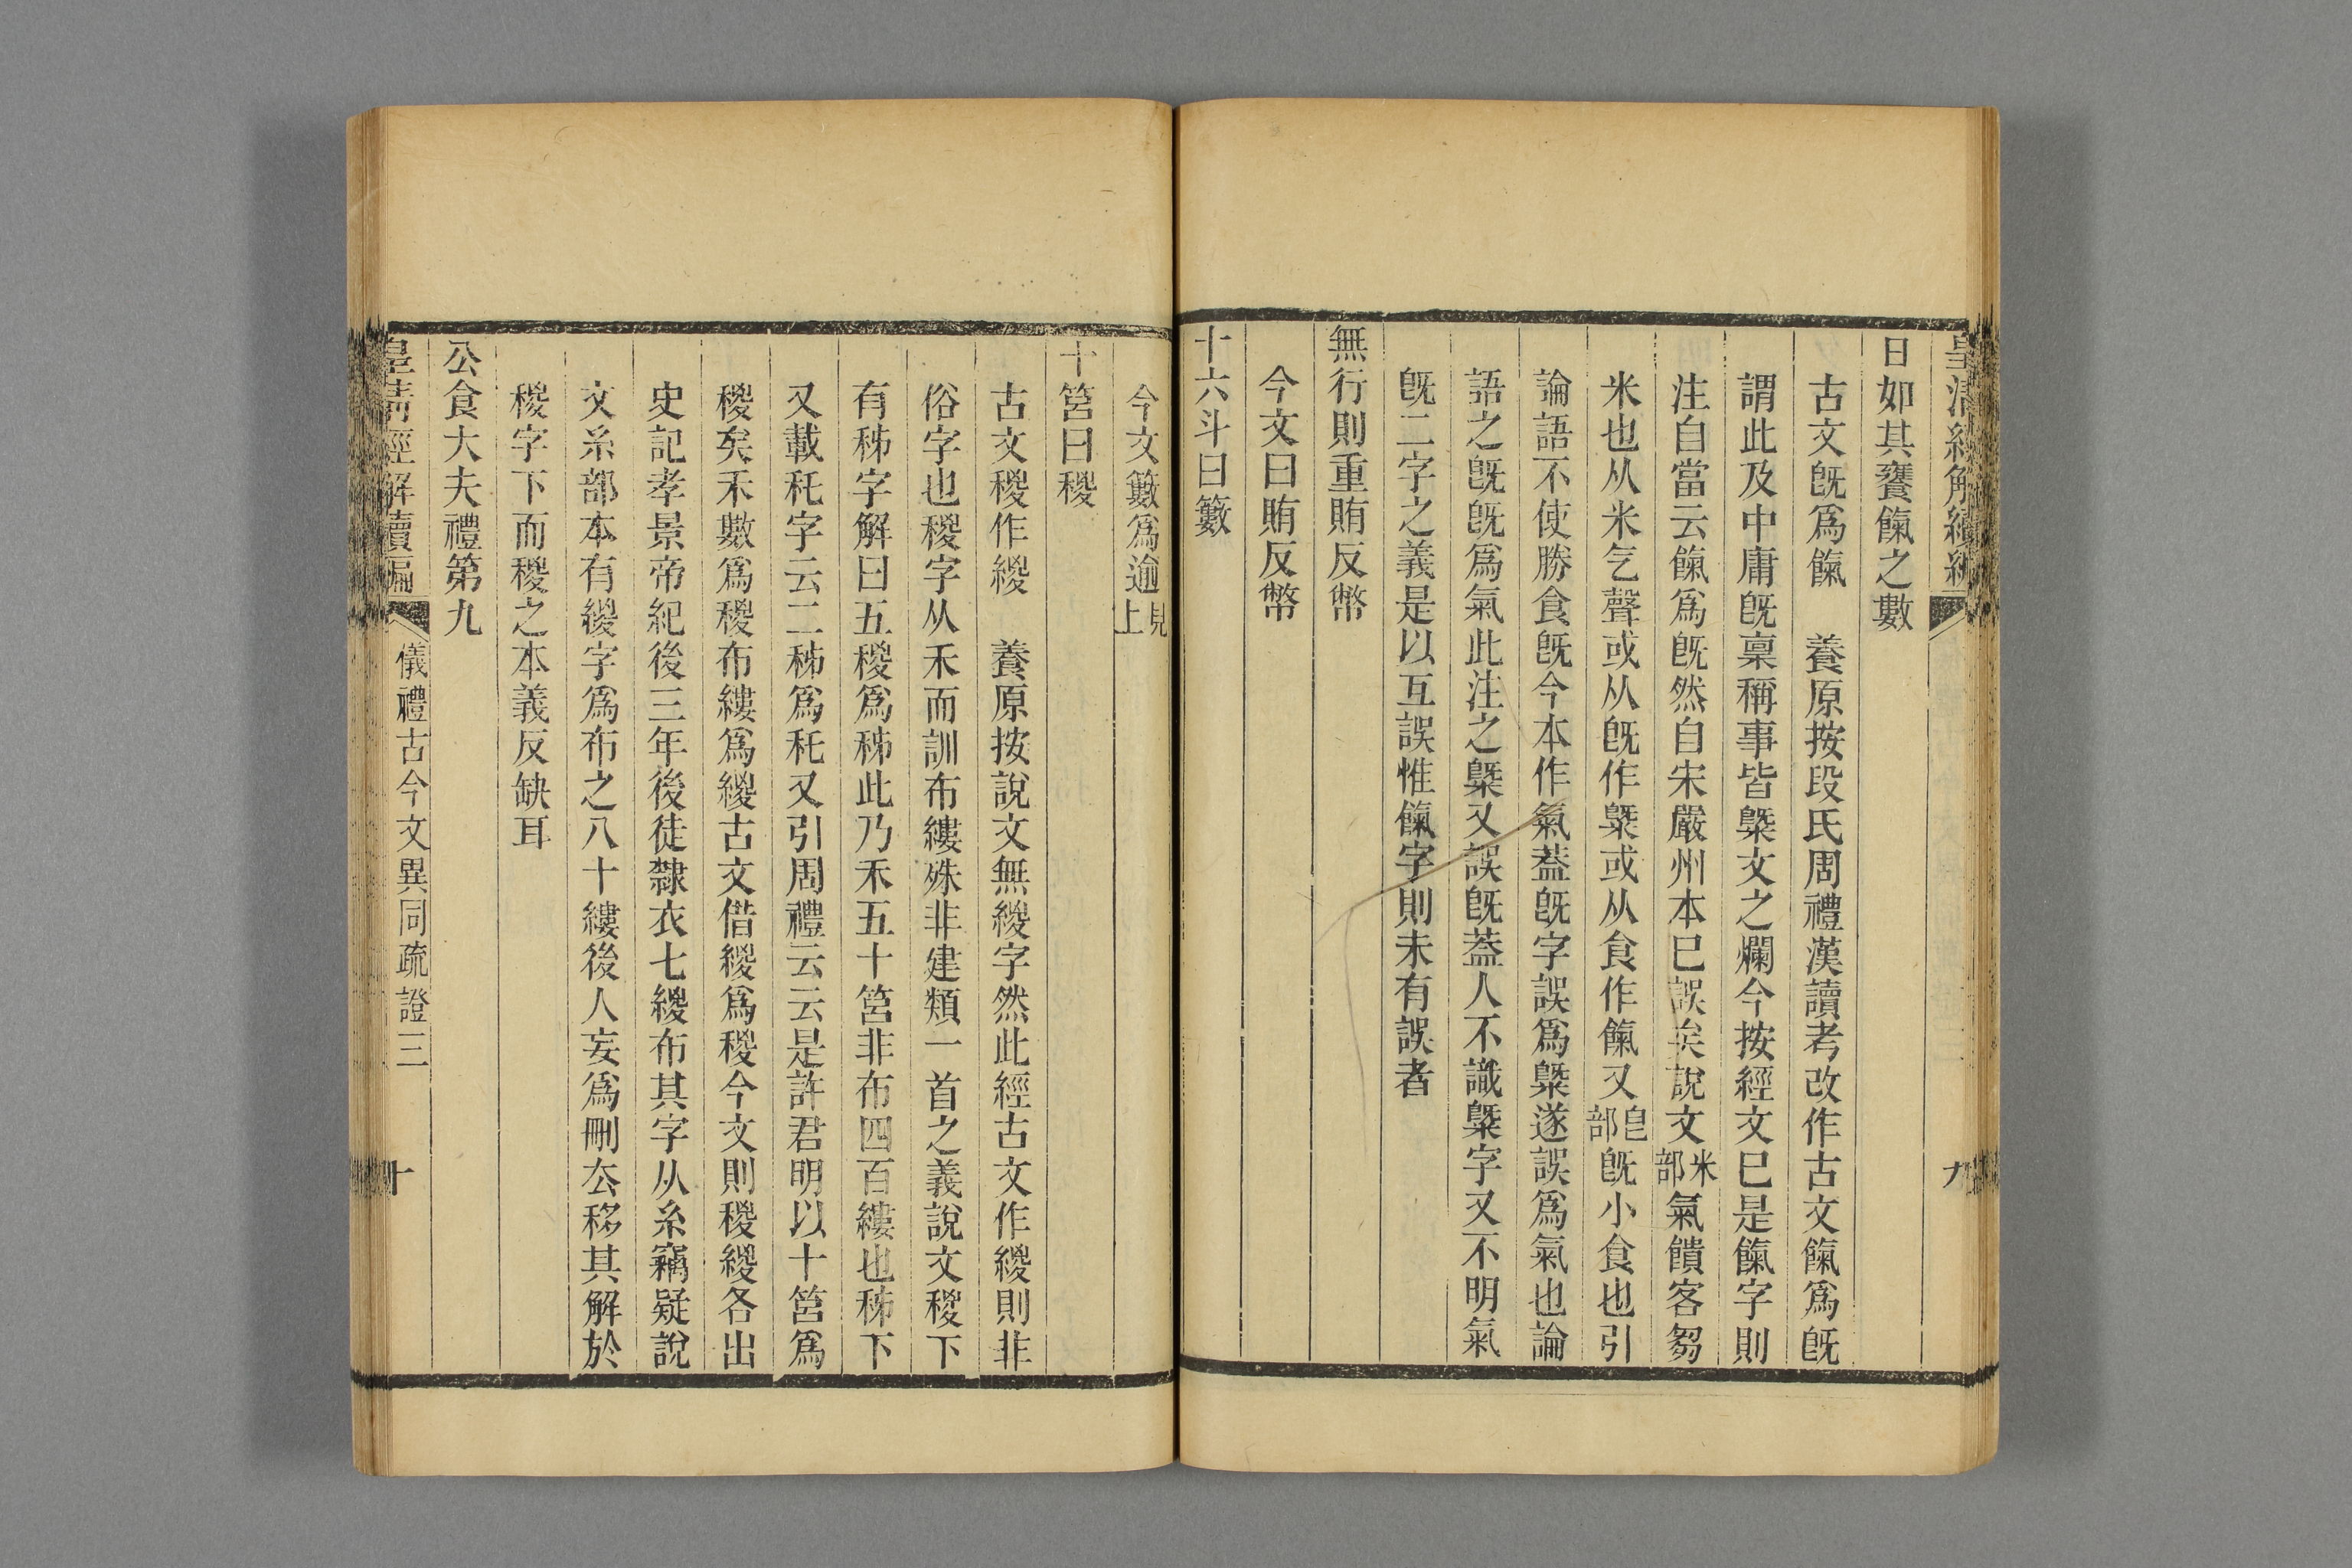 皇清經解續編
九
日如其饔餼之數
古文旣爲餼　養原按段氏周禮漢讀考改作古文餼爲旣
謂此及中庸旣稟稱事皆㮣文之爛今按經文巳是餼字則
注自當云餼爲旣然自宋嚴州本巳誤矣說文米部氣饋客芻
米也从米气聲或从旣作㮣或从食作餼又皀部旣小食也引
論語不使勝食旣今本作氣葢旣字誤爲㮣遂誤爲氣也論
語之旣旣爲氣此注之㮣又誤旣葢人不識㮣字又不明氣
旣二字之義是以互誤惟餼字則未有誤者
無行則重賄反幣
今文曰賄反幣
十六斗曰籔
今文籔爲逾見上
十筥曰稯
古文稯作緵　養原按說文無緵字然此經古文作緵則非
俗字也稯字从禾而訓布縷殊非建類一首之義說文稯下
有秭字解曰五稯爲秭此乃禾五十筥非布四百縷也秭下
又載秅字云二秭爲秅又引周禮云云是許君明以十筥爲
稯矣禾數爲稯布縷爲緵古文借緵爲稯今文則稯緵各出
史記孝景帝紀後三年後徒隸衣七緵布其字从糸竊疑說
文糸部本有緵字爲布之八十縷後人妄爲刪厺移其解於
稯字下而稯之本義反缺耳
公食大夫禮第九
皇清經解續編
儀禮古今文異同疏證三
十